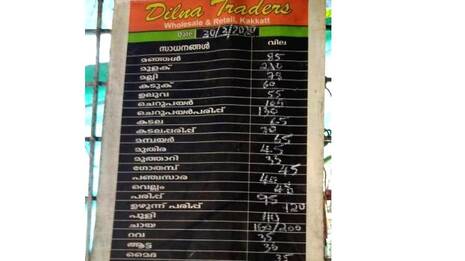 Dilna Traders
Wholesale & Retail, Kakkatt
Date 30/3/2020
സാധനങ്ങൾ വില
മഞ്ഞൾ 85
മുളക് 210
മല്ലി 78
കടുക് 60
ഉലുവ 55
ചെറുപയർ 104
ചെറുപയർപരിപ്പ് 130
കടല 65
കടലപ്പരിപ്പ് 70
മമ്പയർ
മുതിര 45
മുത്താറി 35
ഗോതമ്പ് 45
പഞ്ചസാര 40
വെല്ലം 48
പരിപ്പ് 95
ഉഴുന്ന് പരിപ്പ് 120
പുളി 140
ചായ 160/200
റവ 35
ആട്ട 36
മൈദ 35